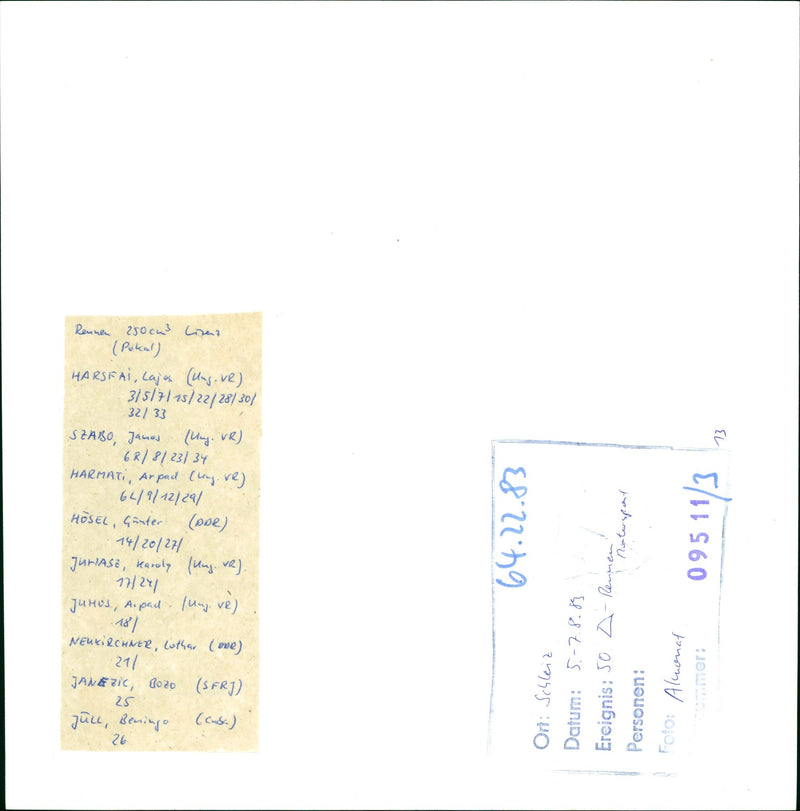 Rennen 250cm³ Lizenz
(Pokal)
HARSFAI, Lajos (Ung. VR)
3/5/7/15/22/28/30/
32/33
SZABO, Janos (Ung. VR)
6R/8/23/34
HARMATI, Arpad (Ung. VR)
6L/9/12/29/
HÖSEL, Günter (DDR)
14/20/27/
JUHASZ, Karoly (Ung. VR).
17/24/
JUHOS, Arpad. (Ung. VR)
18/
NEUKIRCHNER, Lothar (DDR)
21/
JANEZIC, Bozo (SFRJ)
25
JÜLL, Beningo (Cuba)
26
64.22.83
Ort: Schleiz
Datum: 5.-7.8.83
Ereignis: 50 △-Rennen/
Motorsport
Personen:
Foto:
ummer:
09511/3
13